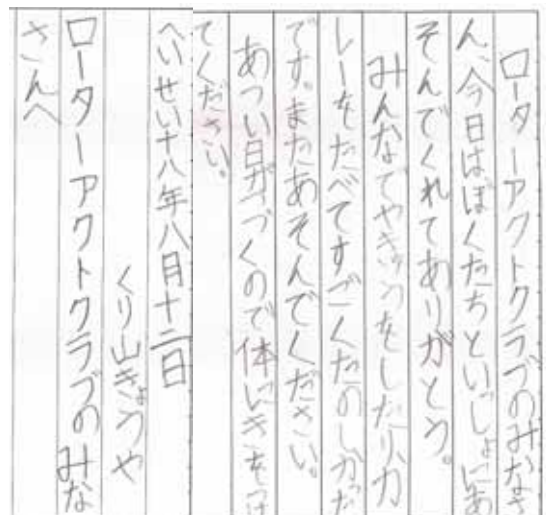 ローターアクトクラブのみなさ
ん、今日はぼくたちといっしょにあ
そんでくれてありがとう。
みんなでやきゅうをしたりカ
レーをたべてすごくたのしかった
です。またあそんでください。
あつい日がつづくので体にきをつけ
てください。
へいせい十八年八月十二日
くり山きょうや
ローターアクトクラブのみな
さんへ